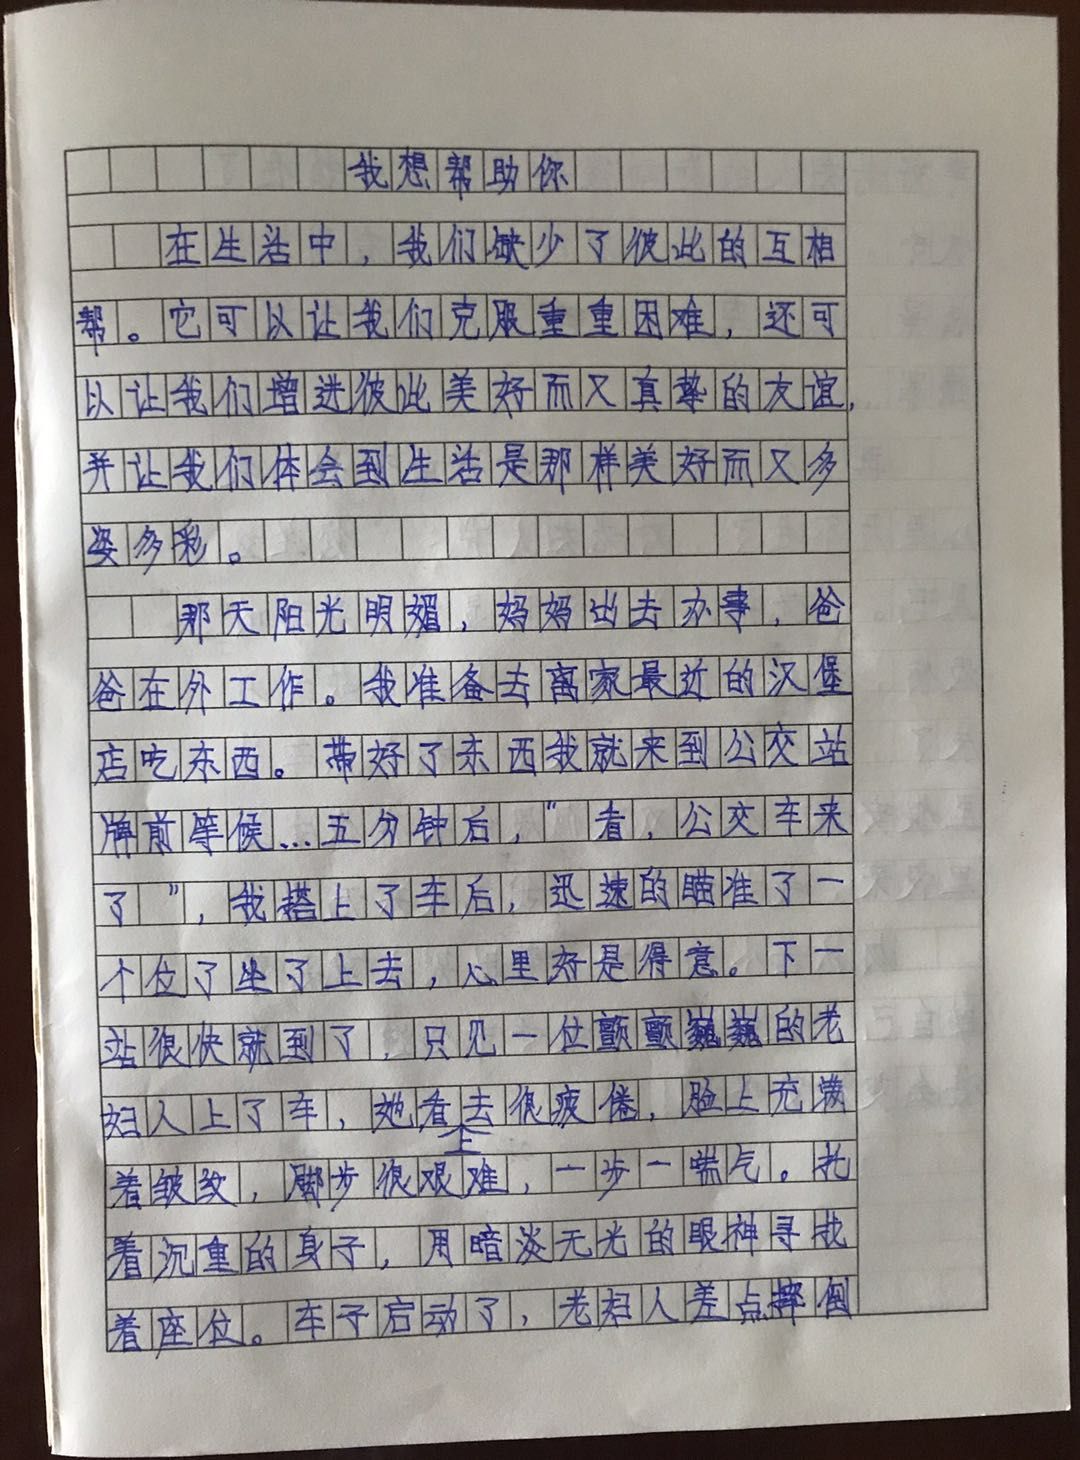 我想帮助你
在生活中，我们缺少了彼此的互相
帮。它可以让我们克服重重困难，还可
以让我们增进彼此美好而又真挚的友谊，
并让我们体会到生活是那样美好而又多
姿多彩。
那天阳光明媚，妈妈出去办事，爸
爸在外工作。我准备去离家最近的汉堡
店吃东西。带好了东西我就来到公交站
牌前等候…五分钟后，“看，公交车来
了”，我搭上了车后，迅速的瞄准了一
个位了坐了上去，心里好是得意。下一
站很快就到了，只见一位颤颤巍巍的老
妇人上了车，她看上去很疲倦，脸上充满
着皱纹，脚步很艰难，一步一喘气。扎
着沉重的身子，用暗淡无光的眼神寻找
着座位。车子启动了，老妇人差点摔倒